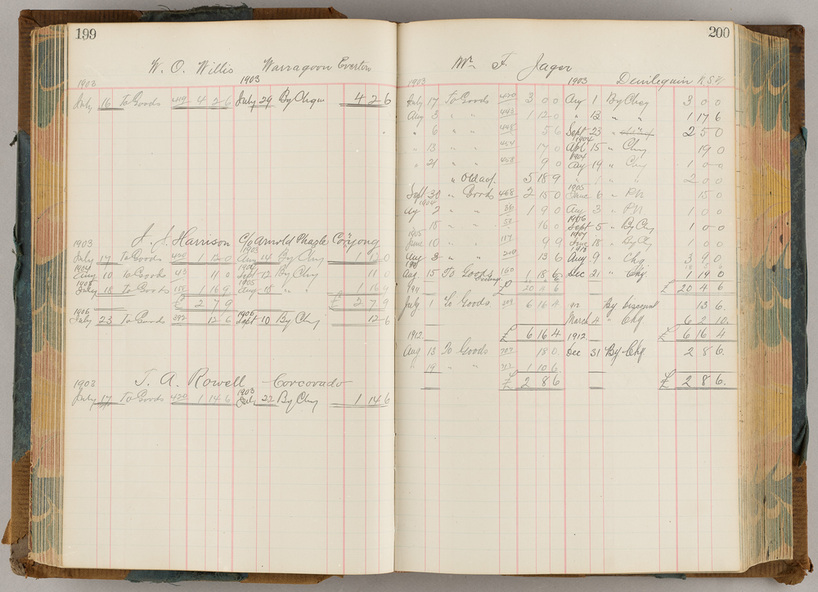 199
W. O. Willis Warragoon Everton
1903 1903
July 16 To Goods 4 2 6 July 29 By Chqe 4 2 6
1903 J. J. Harrison C/o Arnold Phagle Coryong
July 17 To Goods 1 12 0 Aug 14 By Chq 1 12 0
Aug 10 to Goods 11 0 Sept 12 By Chq 11 0
1905 1905
July 18 to Goods 1 16 9 Aug 18 " " 1 16 9
£ 2 7 9 £ 2 7 9
1906 1906
July 23 To Goods 12 6 Sept 10 By Chq 12 6
1903 T. A. Rowell Corcorado
1903
July 17 to Goods 1 14 6 July 22 By Chq 1 14 6
200
Mr F. Jager
1903 1903 Deniliquin N.S.W
July 17 To Goods 3 0 0 Aug 1 By Chq 3 0 0
Aug 3 " " 1 12 0 " 13 " " 1 17 6
" 6 " " 5 6 Sept 23 " 2 5 0
1904
" 13 " " 17 0 Apl 15 " Chq 19 0
1904
" 21 " " 9 0 Aug 19 " Chq 1 0 0
" Old a/cf. 5 18 9 2 0 0
1905
Sept 30 " Goods 468 2 15 0 June 6 " P.N. 15 0
Aug 2 " " 1 9 0 Aug 3 " P.N 1 0 0
1906
" 18 " " 16 0 Sept 5 " By Chq 1 0 0
1905 1907
June 10 " " 9 9 June 18 " By Chq 1 0 0
Aug 3 " " 13 6 Aug 9 " Chq 3 9 0
Aug 15 To Goods 160 1 18 6 Dec 21 " Chq 1 19 0
£ 20 4 6 £ 20 4 6
July 1 To Goods 6 16 4 By discount 13 6
March 4 " Chq 6 2 10
1912 £ 6 16 4 1912 £ 6 16 4
Aug 13 To Goods 18 0 Dec 31 By Chq 2 8 6
" 19 " " 1 10 6
£ 2 8 6 £ 2 8 6